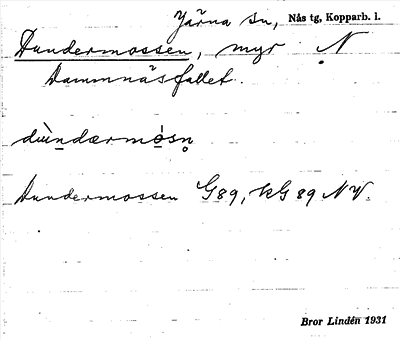 Järna sn, Nås tg, Kopparb. l.
Dundermossen, myr N
Dammnäsfallet.
dùndærmòsn̥
Dundermossen G89, kG 89 NV.
Bror Lindén 1931